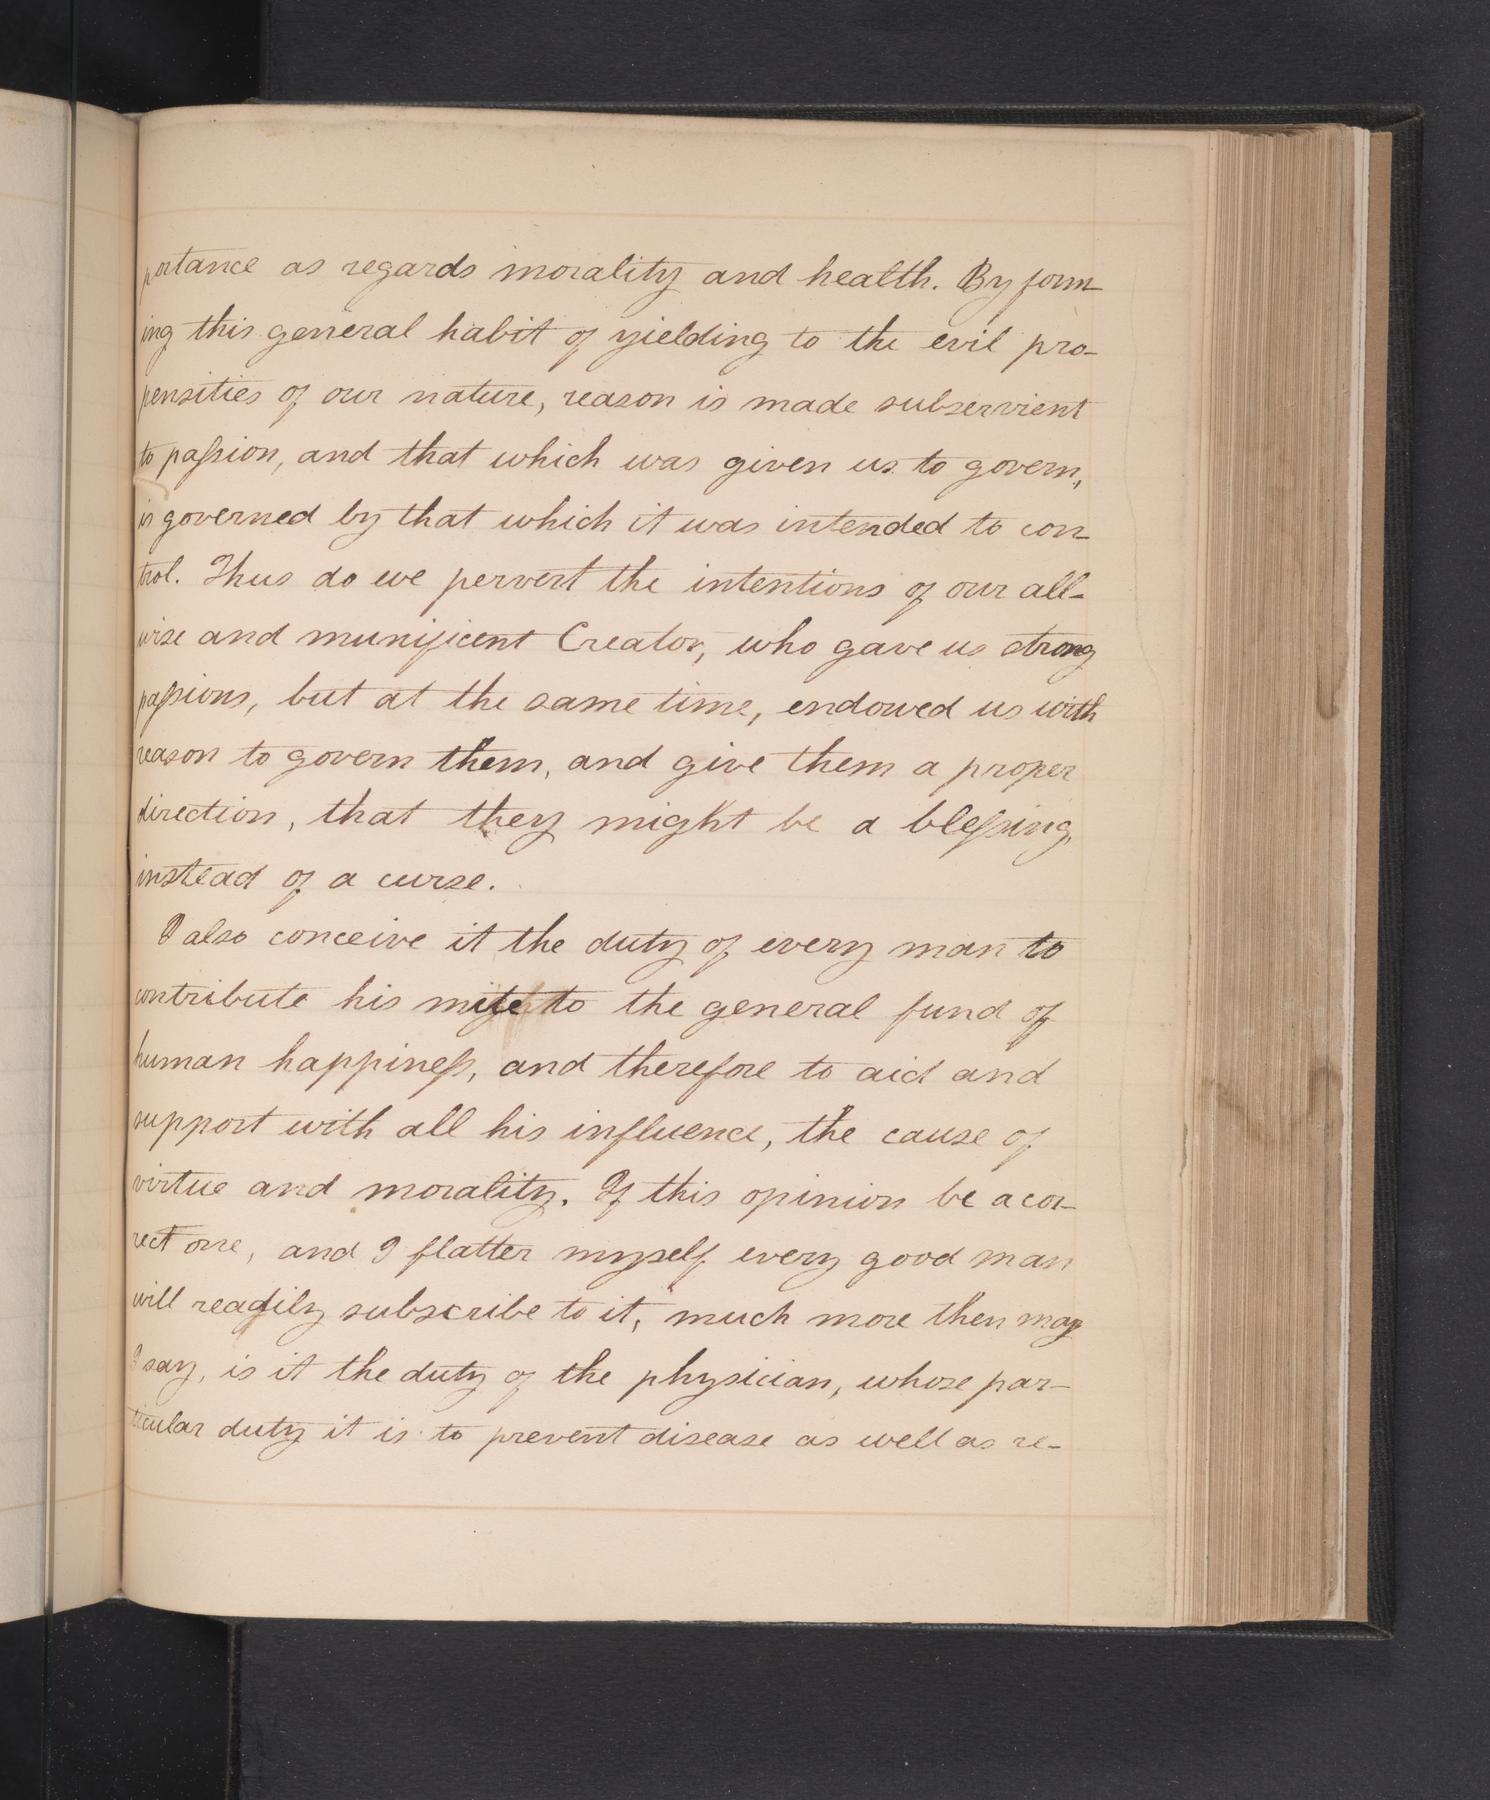 portance as regards morality and health. By form-
ing this general habit of yielding to the evil pro-
pensities of our nature, reason is made subservient
to paſsion, and that which was given us to govern,
is governed by that which it was intended to con-
trol. Thus do we pervert the intentions of our all-
wise and munificent Creator, who gave us strong
paſsions, but at the same time, endowed us with
reason to govern them, and give them a proper
direction, that they might be a bleſsing,
instead of a curse.
I also conceive it the duty of every man to
contribute his mite to the general fund of
human happineſs, and therefore to aid and
support with all his influence, the cause of
virtue and morality. If this opinion be a cor-
rect one, and I flatter myself every good man
will readily subscribe to it, much more then may
I say, is it the duty of the physician, whose par-
ticular duty it is to prevent disease as well as re-